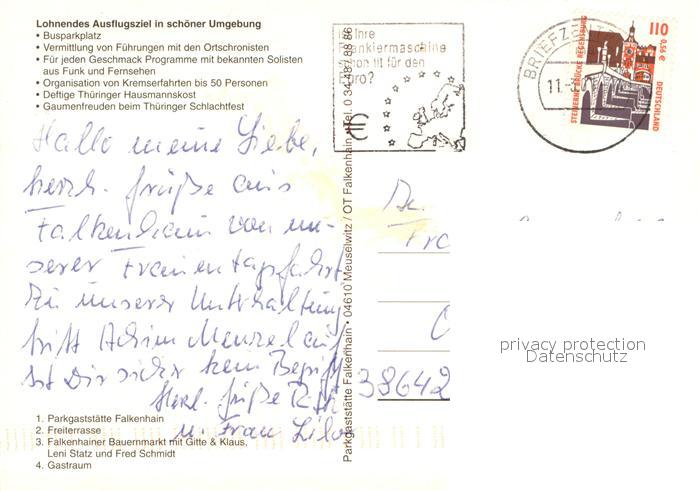 Lohnendes Ausflugsziel in schöner Umgebung
• Busparkplatz
• Vermittlung von Führungen mit den Ortschronisten
• Für jeden Geschmack Programme mit bekannten Solisten
aus Funk und Fernsehen
• Organisation von Kremserfahrten bis 50 Personen
• Deftige Thüringer Hausmannskost
• Gaumenfreuden beim Thüringer Schlachtfest
Hallo meine Liebe,
herzl. Grüße aus
Falkenhain von un-
serer Frauentagsfahrt
Zu unserer Unterhaltung
tritt Achim Menzel auf
Ist Dir sicher kein Begriff
Herzl. Grüße
u. Frau Lilo
1. Parkgaststätte Falkenhain
2. Freiterrasse
3. Falkenhainer Bauernmarkt mit Gitte & Klaus,
Leni Statz und Fred Schmidt
4. Gastraum
Parkgaststätte Falkenhain • 04610 Meuselwitz / OT Falkenhain • Tel. 0 34 48 / 88 86
Ist Ihre
Frankiermaschine
schon fit für den
Euro?
BRIEFZENTRUM
11.-3.
110
0,56 €
DEUTSCHLAND
STEINERNE BRÜCKE REGENSBURG
An
Fra
38642
privacy protection
Datenschutz